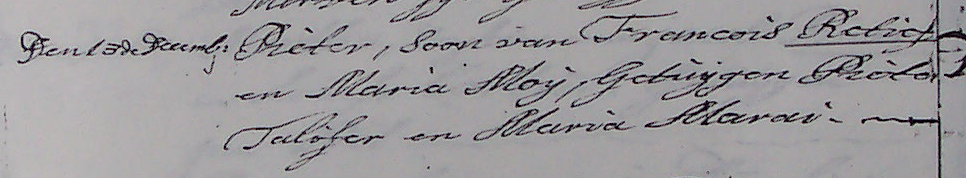 Den 13de Decemb: Pieter, soon van Francois Retief
en Maria Moÿ, Getuÿgen Pieter
Taljser en Maria Marai.